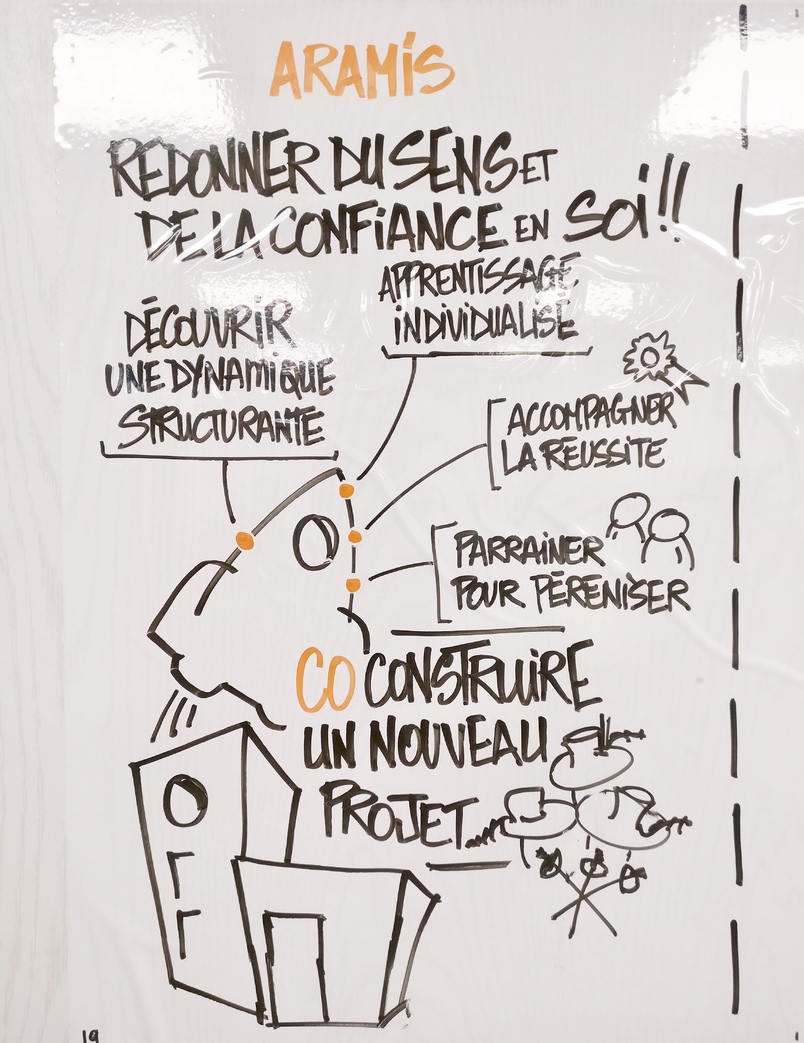 ARAMIS
REDONNER DU SENS ET
DE LA CONFIANCE EN SOI !!
APPRENTISSAGE
INDIVIDUALISÉ
DÉCOUVRIR
UNE DYNAMIQUE
STRUCTURANTE
ACCOMPAGNER
LA RÉUSSITE
PARRAINER
POUR PÉRENISER
CO CONSTRUIRE
UN NOUVEAU
PROJET...
19